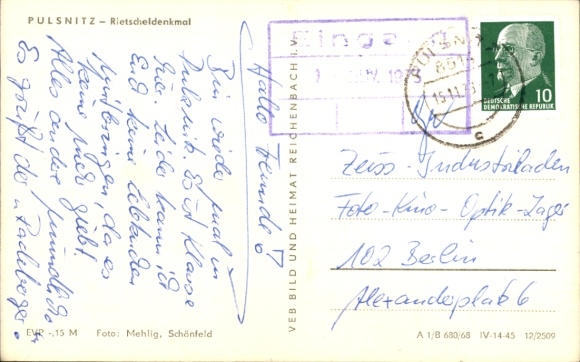 PULSNITZ – Rietscheldenkmal
Hallo Freunde!
Bin wieder mal in
Pulsnitz. Es ist Klasse
hier. Leider kann ich
Euch keine lebenden
mitbringen, da es
keine mehr giebt.
Alles andere mündlich
Es grüßt der Radeberger.
EVP –,15 M Foto: Mehlig, Schönfeld
VEB BILD UND HEIMAT REICHENBACH i. V.
DEUTSCHE
DEMOKRATISCHE REPUBLIK
10
Zeiss-Industrieladen
Foto-Kino-Optik-Lager
102 Berlin
Alexanderplatz 6
A 1/B 680/68 IV-14-45 12/2509